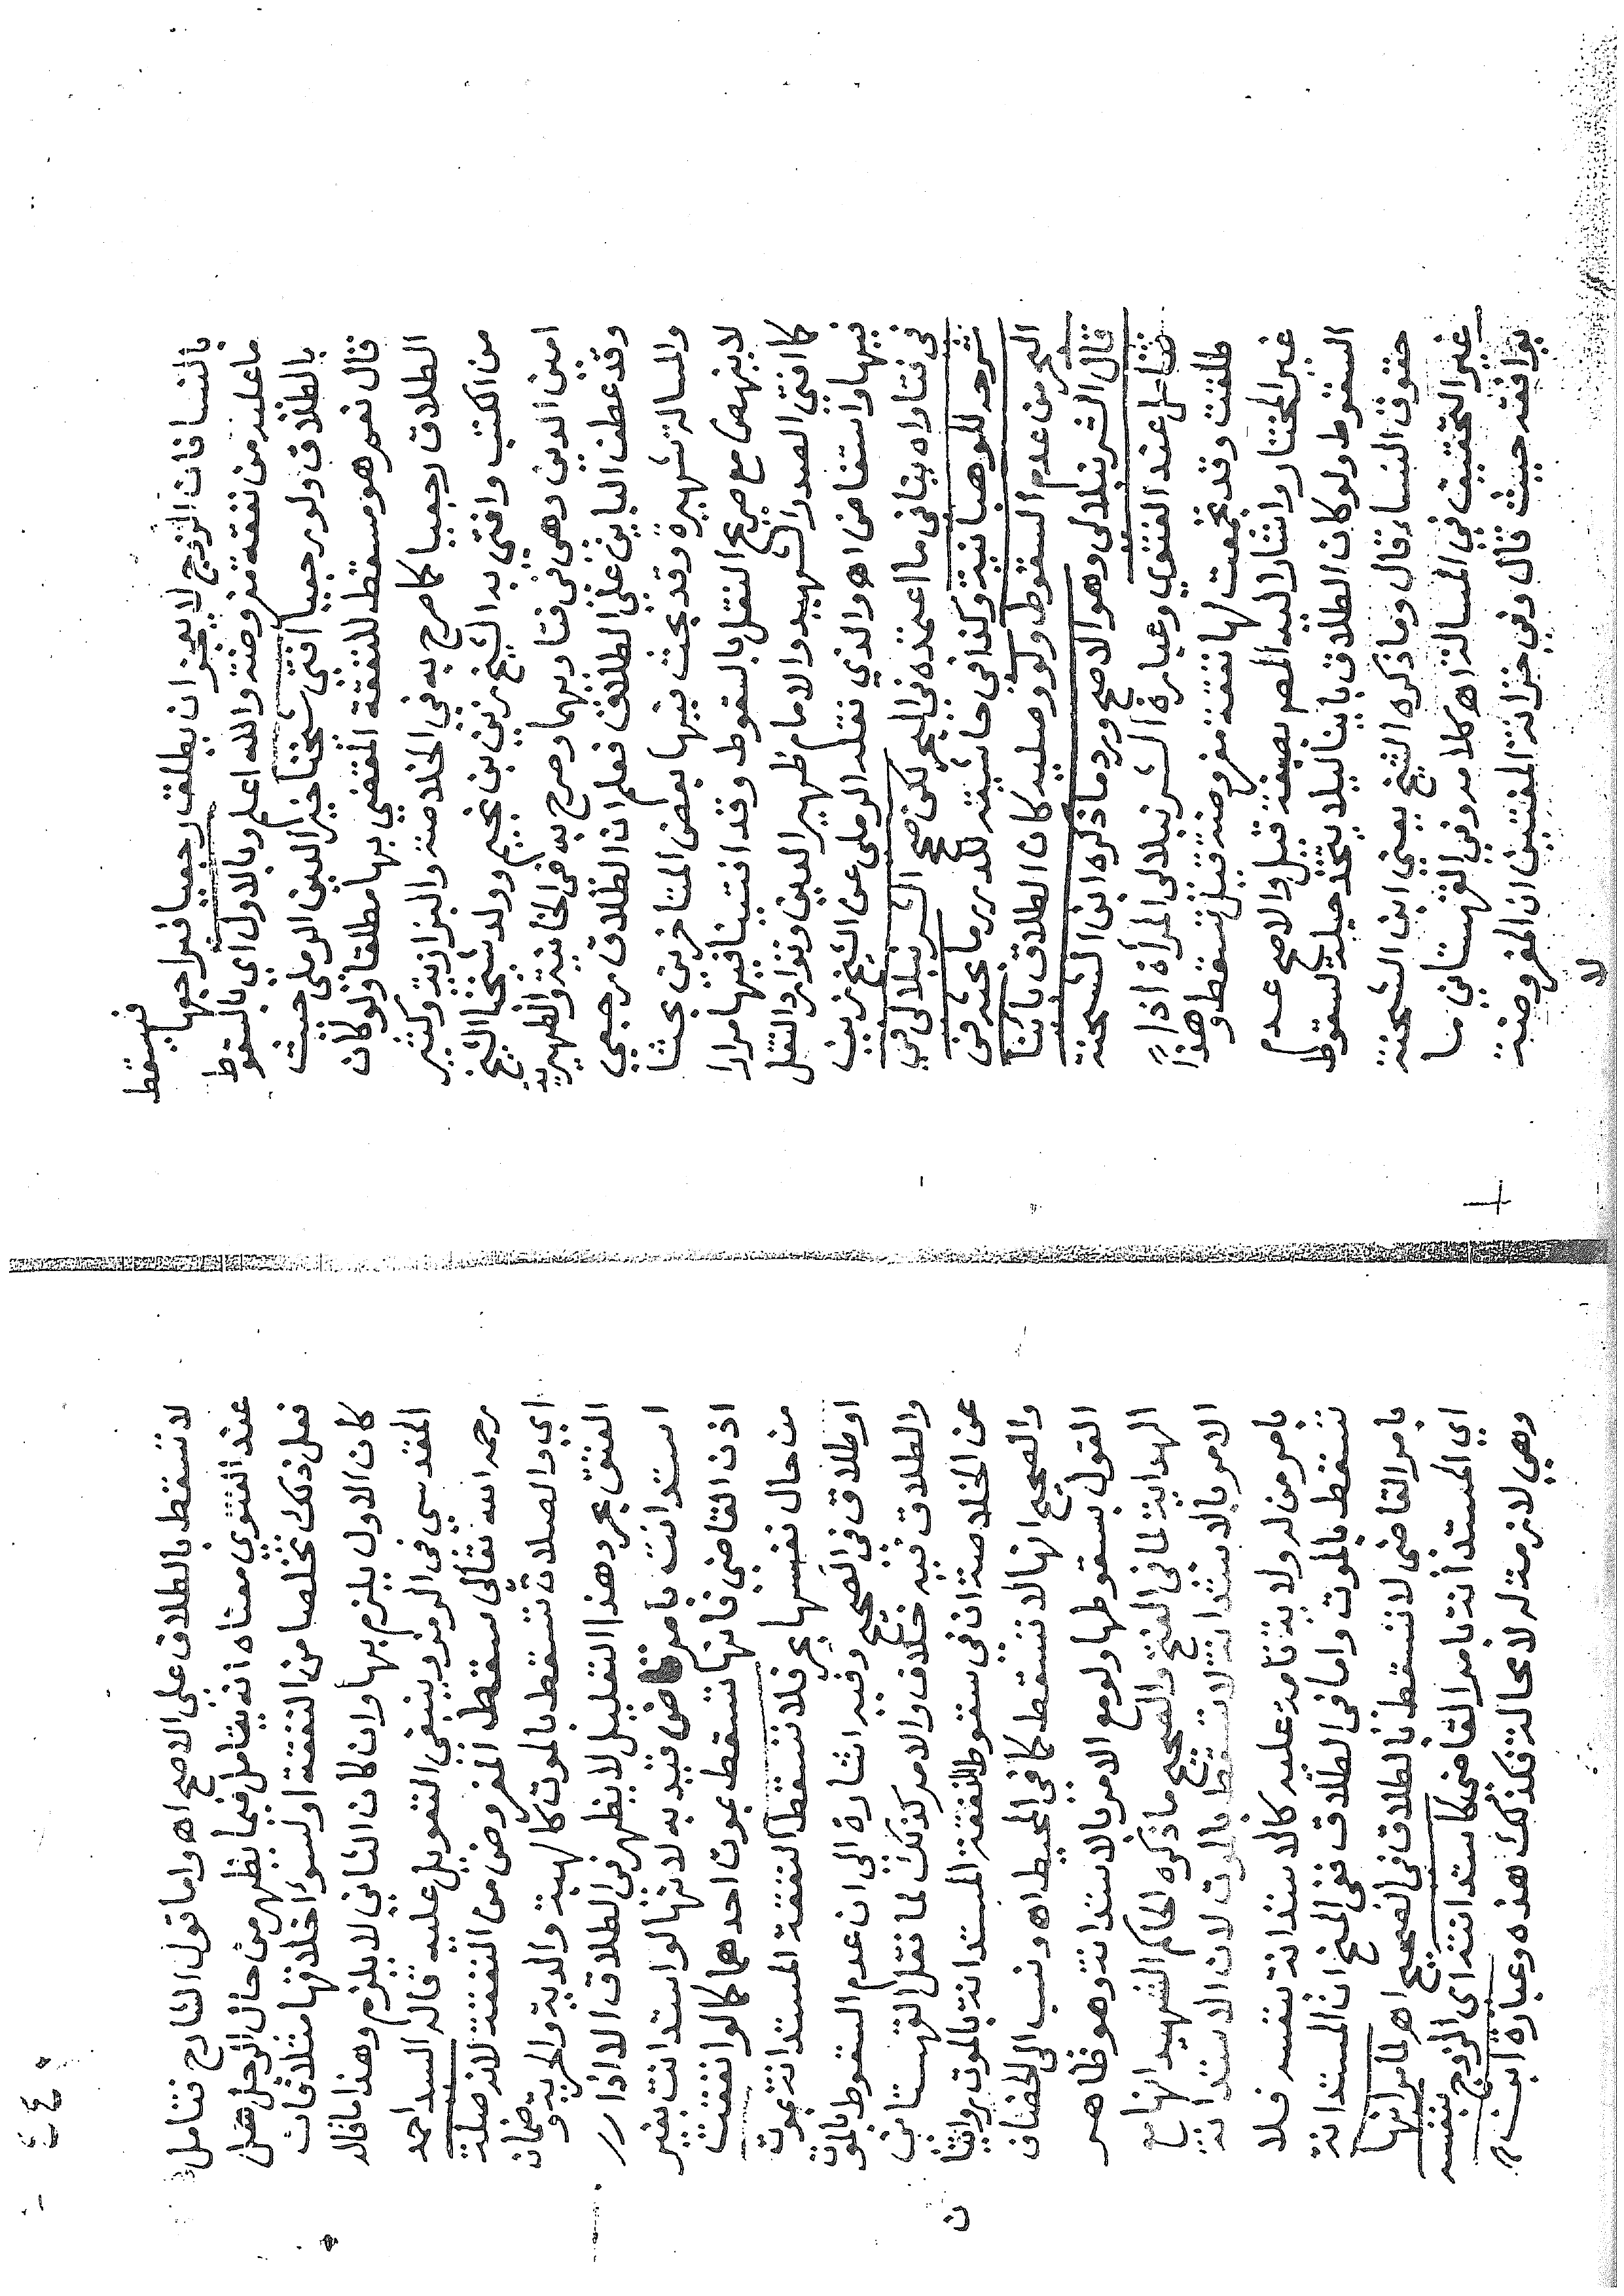 فيسقط
بالنسا فان الزوج لا يعجز ان يطلقها رجعيا فيراجعها
ما عليه من نفقة مفروضة والله اعلم وبالاول اي بالسقوط
بالطلاق ولو رجعيا افتى شيخنا خير الدين الرملي حيث
قال نعم هو مسقط للنفقة المقضي بها مطلقا ولو كان
الطلاق رجعيا كما صرح به في الخلاصة والبزازية وكثير
من الكتب وافتى به الشيخ زين بن نجيم وولد شيخنا الشيخ
امين الدين وهي في فتاويهما وصرح به في الخانية والظهيرية
وقد عطف الباين على الطلاق فعلم ان الطلاق رجعي
والمسالة شهيرة وقد بحث فيها بعض المتاخرين بحثا
لا ينهض مع صريح النقل بالسقوط وقد افتينا فيها مرارا
كما افتى الصدر الشهيد والامام ظهير الدين وتوارد النقل
فيها واستفاض اه والذي نقله الرملي عن الشيخ زين
في فتاواه ينافي ما اعتمده في البحر لكن صحح الشرنبلالي في
شرحه للوهبانية وكذا في حاشيته للدرر ما بحثه في
البحر من عدم السقوط ولو وصليه كان الطلاق بائنا
قال الشرنبلالي وهو الاصح ورد ما ذكره ابن الشحنة
فتامل عند الفتوي وعبارة الشرنبلالي المرأة اذا
طلقت وقد تجمعت لها نفقة مفروضة قيل تسقط وهذا
غير المختار واشار اليه المص بصيغة قيل والاصح عدم
السقوط ولو كان الطلاق باينا ليلا يتخذ حيلة لسقوط
حقوق النساء قال وما ذكره الشيخ يعني ابن الشحنة
غير التحقيق في المسالة اه كلامه وفي القهستاني ما
يوافقه حيث قال وفي خزانة المفتين ان المفروضة
لا
لا تسقط بالطلاق على الاصح اه واما قول الشارح فتامل
عند الفتوي معناه انه يتامل فيما يظهر من حال الرجل هل
فعل ذلك تخلصا من النفقة او لسوء اخلاقها مثلا فان
كان الاول يلزم بها وان كان الثاني لا يلزم وهذا ما قاله
المقدسي في الرمز وينبغي التعويل عليه قاله السيد احمد
رحمه الله تعالى يسقط المفروض من النفقة لانه صلة
اي والصلات تسقط بالموت كالهبة والدية والجزية وضمان
العتق بحر وهذا التعليل لا يظهر في الطلاق الا اذا
استدانت بامر قاض قيد به لانها لو استدانت بغير
اذن القاضي فانها تسقط بموت احدهما كما لو انفقت
من حال نفسها بحر فلا تسقط النفقة المستدانة بموت
او طلاق في الصحيح وفيه اشارة الى ان عدم السقوط بالموت
والطلاق فيه خلاف والامر كذلك لما نقل القهستاني
عن الخلاصة ان في سقوط النفقة المستدانة بالموت روايتان
والصحيح انها لا تسقط كما في المحيط اه ونسب الى الخصاف
القول بسقوطها ولو مع الامر بالاستدانة وهو ظاهر
الهداية لما في الفتح والصحيح ما ذكره الحاكم الشهيد انها مع
الامر بالاستدانة لا تسقط بالموت لان الاستدانة
بامر من له ولاية تامة عليه كالاستدانة بنفسه فلا
تسقط بالموت واما في الطلاق ففي المنح ان المستدانة
بامر القاضي لا تسقط بالطلاق في الصحيح اه لما مر انها
اي المستدانة بامر القاضي كاستدانته اي الزوج بنفسه
وهي لازمة له لا محالة فكذلك هذه وعبارة ابن